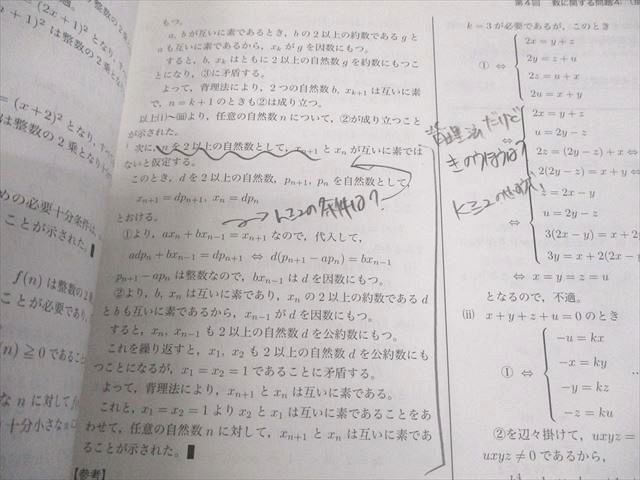 (2x+1)² となり,
+1)² は整数の2乗と
= (x+2)² となり, す
は整数の2乗となり
めの必要十分条件は,
ことが示された.
f(n) は整数の2
ことが必要であり,
(n) ≧ 0 であること
な n に対して f
十分小さな
もつ.
a, b が互いに素であるとき, b の2以上の約数である g と
a も互いに素であるから, x_k が g を因数にもつ.
すると, b, x_k はともに2以上の自然数 g を約数にもつこ
とになり, ③に矛盾する.
よって, 背理法により, 2つの自然数 b, x_{k+1} は互いに素
で, n = k+1 のときも②は成り立つ.
以上(i)~(iii)より, 任意の自然数 n について, ②が成り立つこと
が示された.
次に, n を2以上の自然数として, x_{n+1} と x_n が互いに素では
ないと仮定する.
このとき, d を2以上の自然数, p_{n+1}, p_n を自然数として,
x_{n+1} = dp_{n+1}, x_n = dp_n
とおける.
①より, ax_n + bx_{n-1} = x_{n+1} なので, 代入して,
adp_n + bx_{n-1} = dp_{n+1} ⇔ d(p_{n+1} - ap_n) = bx_{n-1}
p_{n+1} - ap_n は整数なので, bx_{n-1} は d を因数にもつ.
②より, b, x_n は互いに素であり, x_n の2以上の約数である d
と b も互いに素であるから, x_{n-1} が d を因数にもつ.
すると, x_n, x_{n-1} も2以上の自然数 d を公約数にもつ.
これを繰り返すと, x_1, x_2 も2以上の自然数 d を公約数にも
つことになるが, x_1 = x_2 = 1 であることに矛盾する.
よって, 背理法により, x_{n+1} と x_n は互いに素である.
これと, x_1 = x_2 = 1 より x_2 と x_1 は互いに素であることをあ
わせて, 任意の自然数 n に対して, x_{n+1} と x_n は互いに素であ
ることが示された.
【参考】
の条件は?
背理法だけど
きのうほうほう?
K≧2の
第4回 数に関する問題4
k = 3 が必要であるが, このとき
① ⇔
2x = y + z
2y = z + u
2z = u + x
2u = x + y
⇔
2x = y + z
u = 2y - z
2z = (2y - z) + x ⇔
2(2y - z) = x + y ⇔
z = 2x - y
u = 2y - z
3(2x - y) = x +
3y = x + 2(2x -
⇔ x = y = z = u
となるので, 不適.
(ii) x + y + z + u = 0 のとき
① ⇔
-u = kx
-x = ky
-y = kz
-z = ku
②を辺々掛けて, uxyz =
uxyz ≠ 0 であるから,